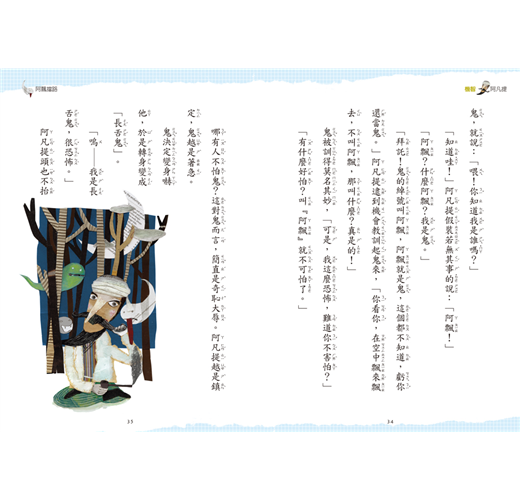 阿飄擋路
機智
阿凡提
鬼,就說:「喂!你知道我是誰嗎?」
「知道哇!」阿凡提假裝若無其事的說:「阿飄!」
「阿飄?什麼阿飄?我是鬼。」
「拜託!鬼的綽號叫阿飄,阿飄就是鬼,這個都不知道,虧你
還當鬼。」阿凡提逮到機會教訓起鬼來,「你看你,在空中飄來飄
去,不叫阿飄,那叫什麼?真是的!」
鬼被訓得莫名其妙,「可是,我這麼恐怖,難道你不害怕?」
「有什麼好怕?叫『阿飄』就不可怕了。」
34
哪有人不怕鬼?這對鬼而言,簡直是奇恥大辱。阿凡提越是鎮
定,鬼越是著急。
鬼決定變身嚇
他,於是轉身變成
「長舌鬼」。
「嗚——我是長
舌鬼,很恐怖。」
阿凡提頭也不抬
35